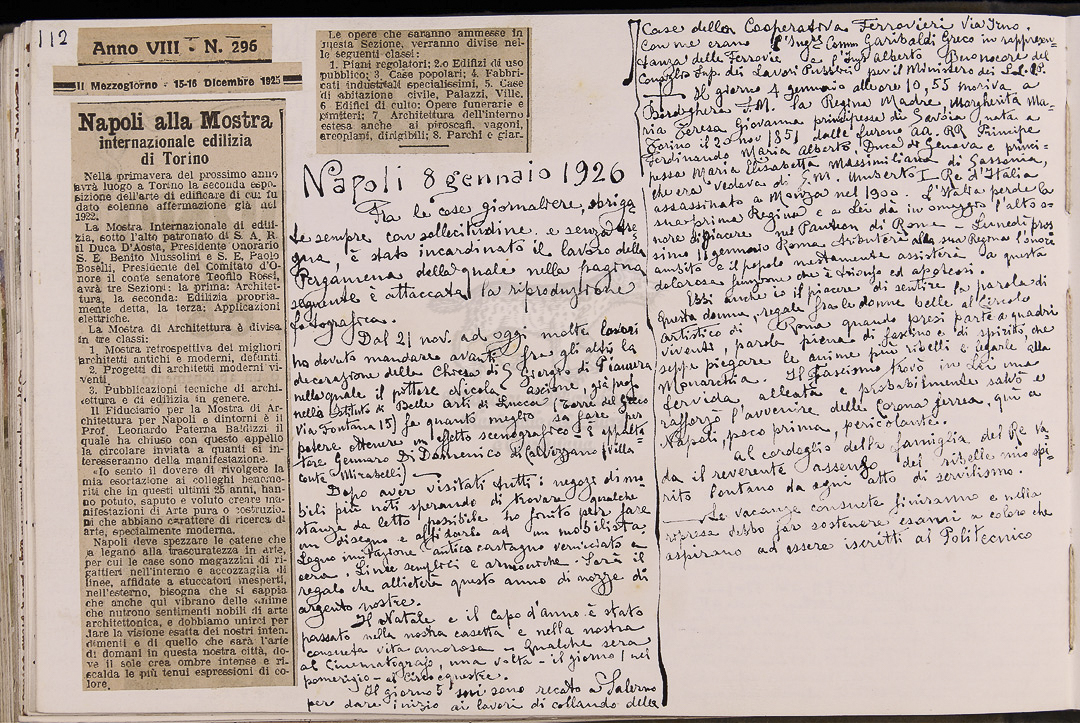 112
Anno VIII - N. 296
Il Mezzogiorno - 15-16 Dicembre 1925
Napoli alla Mostra
internazionale edilizia
di Torino
Nella primavera del prossimo anno
avrà luogo a Torino la seconda espo-
sizione dell'arte di edificare di cui fu
dato solenne affermazione già nel
1922.
La Mostra Internazionale di edili-
zia, sotto l'alto patronato di S. A. R.
il Duca D'Aosta, Presidente Onorario
S. E. Benito Mussolini e S. E. Paolo
Boselli, Presidente del Comitato d'O-
nore il conte senatore Teofilo Rossi,
avrà tre Sezioni: la prima: Architet-
tura, la seconda: Edilizia propria-
mente detta, la terza: Applicazioni
elettriche.
La Mostra di Architettura è divisa
in tre classi:
1. Mostra retrospettiva dei migliori
architetti antichi e moderni, defunti.
2. Progetti di architetti moderni vi-
venti.
3. Pubblicazioni tecniche di archi-
tettura e di edilizia in genere.
Il Fiduciario per la Mostra di Ar-
chitettura per Napoli e dintorni è il
Prof. Leonardo Paterna Baldizzi il
quale ha chiuso con questo appello
la circolare inviata a quanti si in-
teresseranno della manifestazione.
«Io sento il dovere di rivolgere la
mia esortazione ai colleghi benemo-
riti che in questi ultimi 25 anni, han-
no potuto, saputo e voluto creare ma-
nifestazioni di Arte pura o costruzio-
ni che abbiano carattere di ricerca di
arte, specialmente moderna.
Napoli deve spezzare le catene che
la legano alla trascuratezza in arte,
per cui le case sono magazzini di ri-
gattieri nell'interno e accozzaglia di
linee, affidate a stuccatori inesperti,
nell'esterno, bisogna che si sappia
che anche qui vibrano delle anime
che nutrono sentimenti nobili di arte
architettonica, e dobbiamo unirci per
dare la visione esatta dei nostri inten-
dimenti e di quello che sarà l'arte
di domani in questa nostra città, do-
ve il sole crea ombre intense e ri-
scalda le più tenui espressioni di co-
lore.
Le opere che saranno ammesse in
questa Sezione, verranno divise nel-
le seguenti classi:
1. Piani regolatori; 2.o Edifizi di uso
pubblico; 3. Case popolari; 4. Fabbri-
cati industriali specialissimi, 5. Case
di abitazione civile, Palazzi, Ville.
6 Edifici di culto: Opere funerarie e
cimiteri; 7. Architettura dell'interno
estesa anche ai piroscafi, vagoni,
areoplani, dirigibili; 8. Parchi e giar.
Napoli 8 gennaio 1926
Fra le cose giornaliere, sbriga
te sempre con sollecitudine e senza tre
gua, è stato incardinato il lavoro della
Pergamena della quale nella pagina
seguente è attaccata la riproduzione
fotografica.
Dal 21 nov. ad oggi molti lavori
ho dovuto mandare avanti fra gli altri la
decorazione della Chiesa di S. Giorgio di Pianura
nella quale il pittore Nicola Ascione, già prof.
nello Istituto di Belle Arti di Lucca (Torre del Greco
Via Fontana 15) fe quanto meglio sa fare per
potere ottenere un effetto scenografico - È appalta-
tore Gennaro Di Domenico di Calvizzano (Villa
Conte Mirabelli)
Dopo aver visitati tutti i negozi di mo
bili più noti sperando di trovare qualche
stanza da letto possibile ho finito per fare
un disegno e affidarlo ad un mobilista
Legno imitazione antico castagno verniciato a
cera. Linee semplici e armoniche. Sarà il
regalo che allieterà questo anno di nozze di
argento nostre.
Il Natale e il capo d'anno è stato
passato nella nostra casetta e nella nostra
consueta vita amorosa - Qualche sera
al Cinematografo, una volta - il giorno 1 nel
pomerigio - al Circo equestre.
Il giorno 5 mi sono recato a Salerno
per dare inizio ai lavori di collaudo delle
Case della Cooperativa Ferrovieri Via Irno
Con me erano l'Ingre Comm Garibaldi Greco in rappresen-
tanza delle Ferrovie e l'Ing Alberto Buonocore del
Consiglio Sup. dei Lavori Pubblici per il Ministero dei L.L. P.P.
Il giorno 4 gennaio alle ore 10,55 moriva a
Bordighera S.M. la Regina Madre, Margherita Ma-
ria Teresa Giovanna principessa di Savoia nata a
Torino il 20 nov. 1851, dalle furono AA. RR Principe
Ferdinando Maria Alberto, Duca di Genova e princi-
pessa Maria Elisabetta Massimiliana di Sassonia,
che era vedova di S.M. Umberto I Re d'Italia
assassinato a Monza nel 1900. L'Italia perde la
sua prima Regina e a Lei dà in omaggio l'alto o-
nore di giacere nel Panteon di Roma - Lunedì pros
simo 11 gennaio Roma tributerà alla sua Regina l'onore
ambito e il popolo mestamente assisterà a questa
dolorosa funzione che è trionfo ed apoteosi.
Ebbi anche io il piacere di sentire la parola di
questa donna, regale fra le donne belle al circolo
artistico di Roma quando presi parte a quadri
viventi, parola piena di fascino e di spirito, che
seppe piegare le anime più ribelli e legarle alla
Monarchia. Il fascismo trovò in Lei una
fervida alleata e probabilmente salvò e
rafforzò l'avvenire della Corona ferrea, qui a
Napoli, poco prima, pericolante.
Al cordoglio della famiglia del Re va-
da il reverente assenso del ribelle mio spi-
rito lontano da ogni atto di servilismo.
Le vacanze consuete finiranno e nella
ripresa debbo far sostenere esami a coloro che
aspirano ad essere iscritti al Politecnico